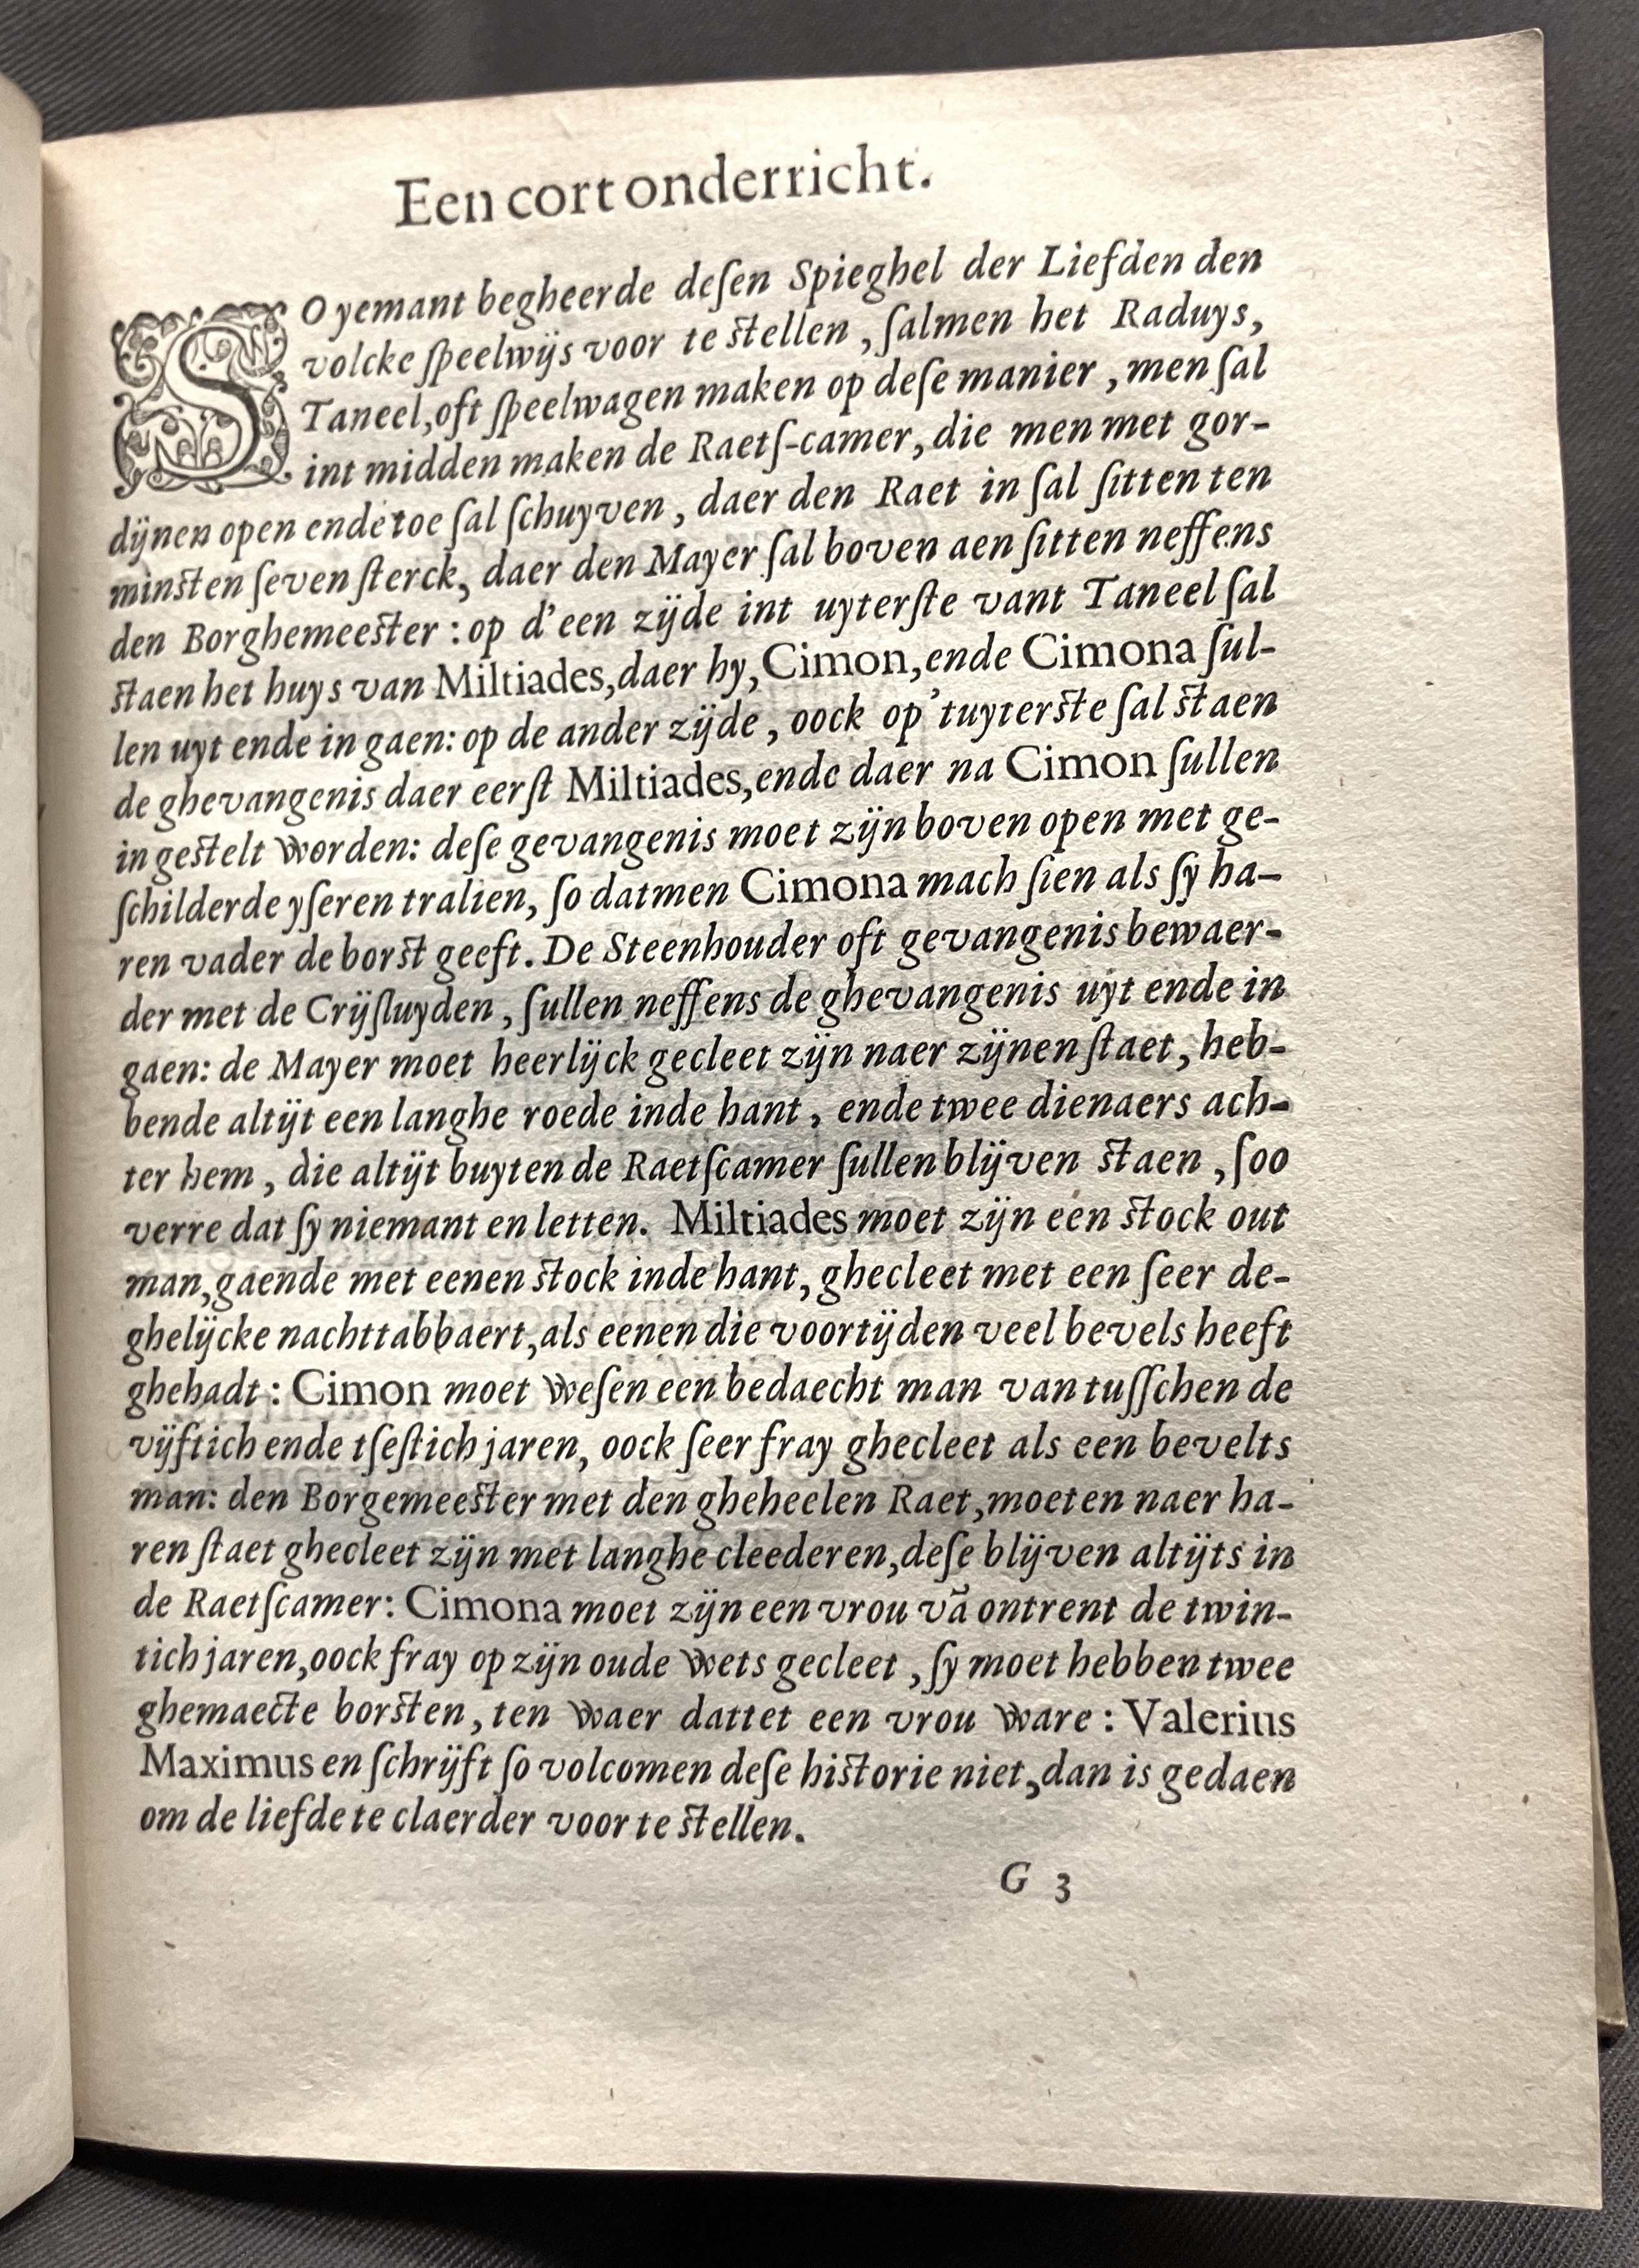 Een cort onderricht.
SO yemant begheerde deſen Spieghel der Liefden den
volcke ſpeelwijs voor te ſtellen, ſalmen het Raduys,
Taneel, oft ſpeelwagen maken op deſe manier, men ſal
int midden maken de Raetſ-camer, die men met gor-
dijnen open ende toe ſal ſchuyven, daer den Raet in ſal ſitten ten
minſten ſeven ſterck, daer den Mayer ſal boven aen ſitten neffens
den Borghemeeſter: op d'een zijde int uyterſte vant Taneel ſal
ſtaen het huys van Miltiades, daer hy, Cimon, ende Cimona ſul-
len uyt ende in gaen: op de ander zijde, oock op 'tuyterſte ſal ſtaen
de ghevangenis daer eerſt Miltiades, ende daer na Cimon ſullen
in geſtelt worden: deſe gevangenis moet zijn boven open met ge-
ſchilderde yſeren tralien, ſo datmen Cimona mach ſien als ſy ha-
ren vader de borſt geeft. De Steenhouder oft gevangenis bewaer-
der met de Crijſluyden, ſullen neffens de ghevangenis uyt ende in
gaen: de Mayer moet heerlijck gecleet zijn naer zijnen ſtaet, heb-
bende altijt een langhe roede inde hant, ende twee dienaers ach-
ter hem, die altijt buyten de Raetſcamer ſullen blijven ſtaen, ſoo
verre dat ſy niemant en letten. Miltiades moet zijn een ſtock out
man, gaende met eenen ſtock inde hant, ghecleet met een ſeer de-
ghelijcke nachttabbaert, als eenen die voortijden veel bevels heeft
ghehadt: Cimon moet weſen een bedaecht man van tuſſchen de
vijftich ende tſeſtich jaren, oock ſeer fray ghecleet als een bevelts
man: den Borgemeeſter met den gheheelen Raet, moeten naer ha-
ren ſtaet ghecleet zijn met langhe cleederen, deſe blijven altijts in
de Raetſcamer: Cimona moet zijn een vrou vã ontrent de twin-
tich jaren, oock fray op zijn oude wets gecleet, ſy moet hebben twee
ghemaecte borſten, ten waer dattet een vrou ware: Valerius
Maximus en ſchrijft ſo volcomen deſe hiſtorie niet, dan is gedaen
om de liefde te claerder voor te ſtellen.
G 3